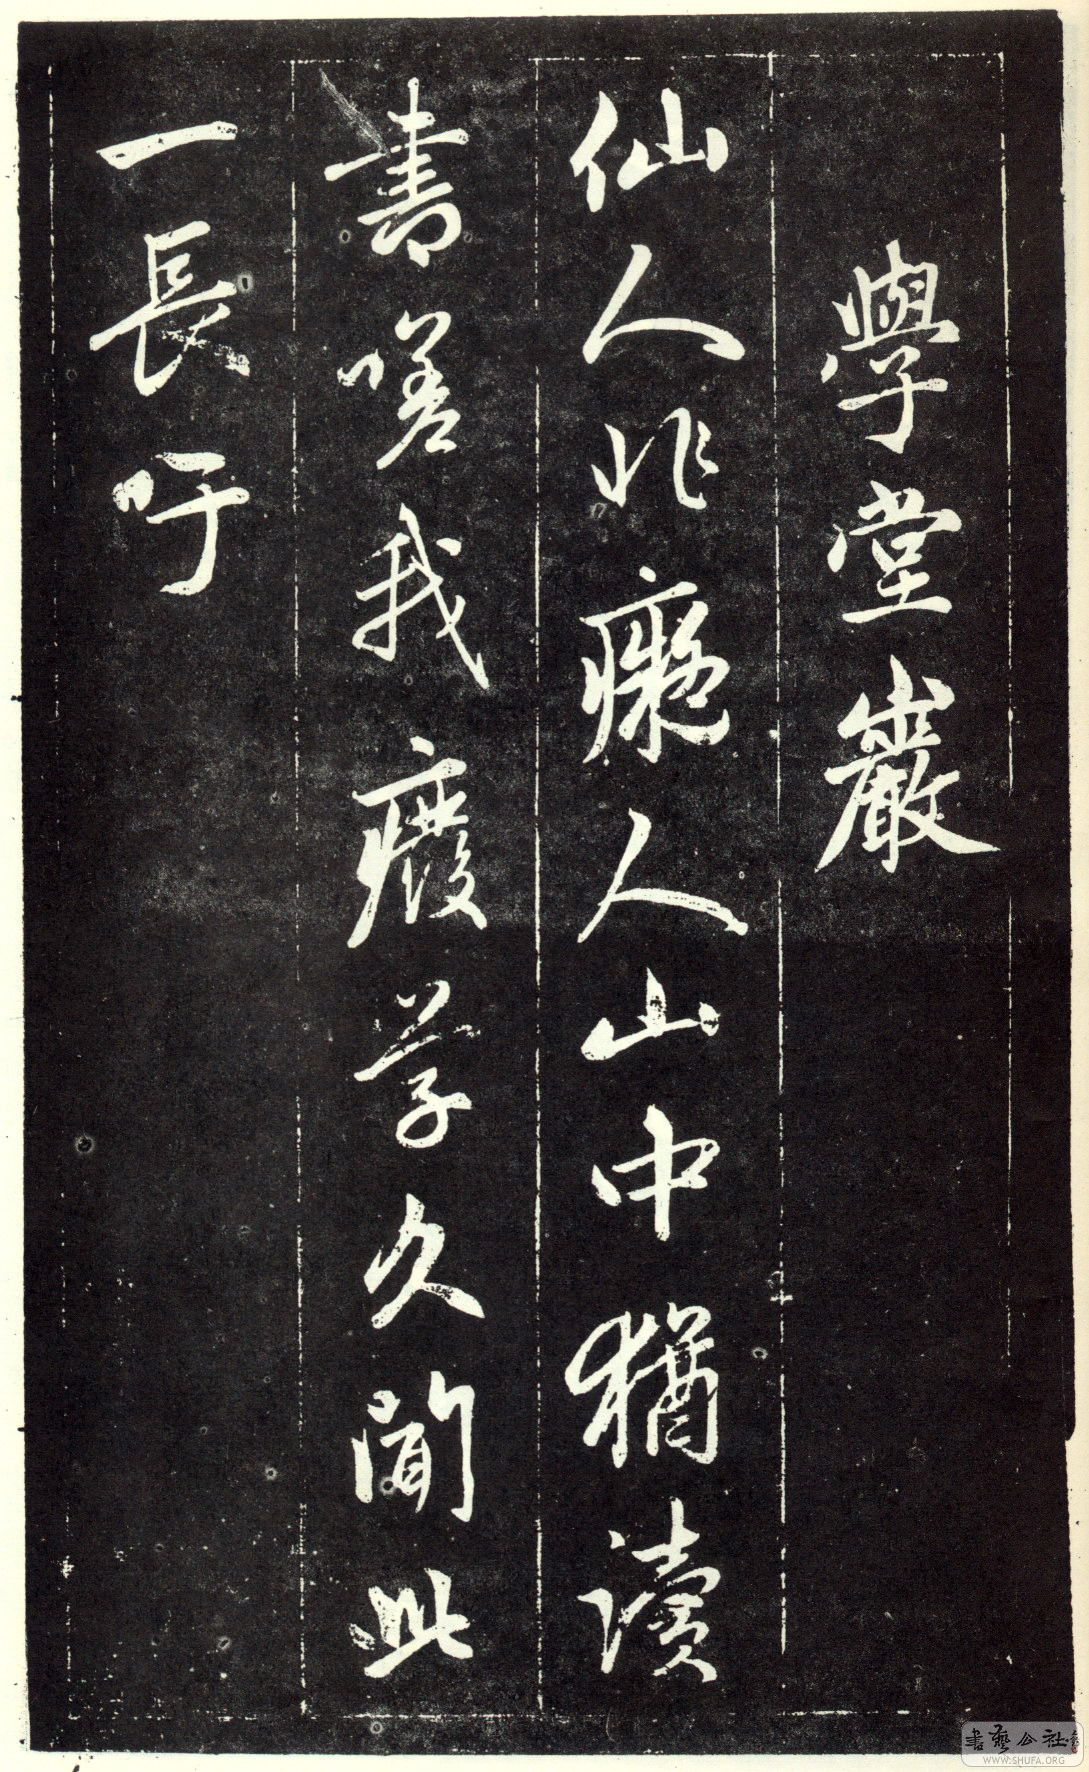 學堂巖
仙人非癡人山中猶讀
書嗟我廢学久聞此
一長吁
書藝公社
WWW.SHUFA.ORG